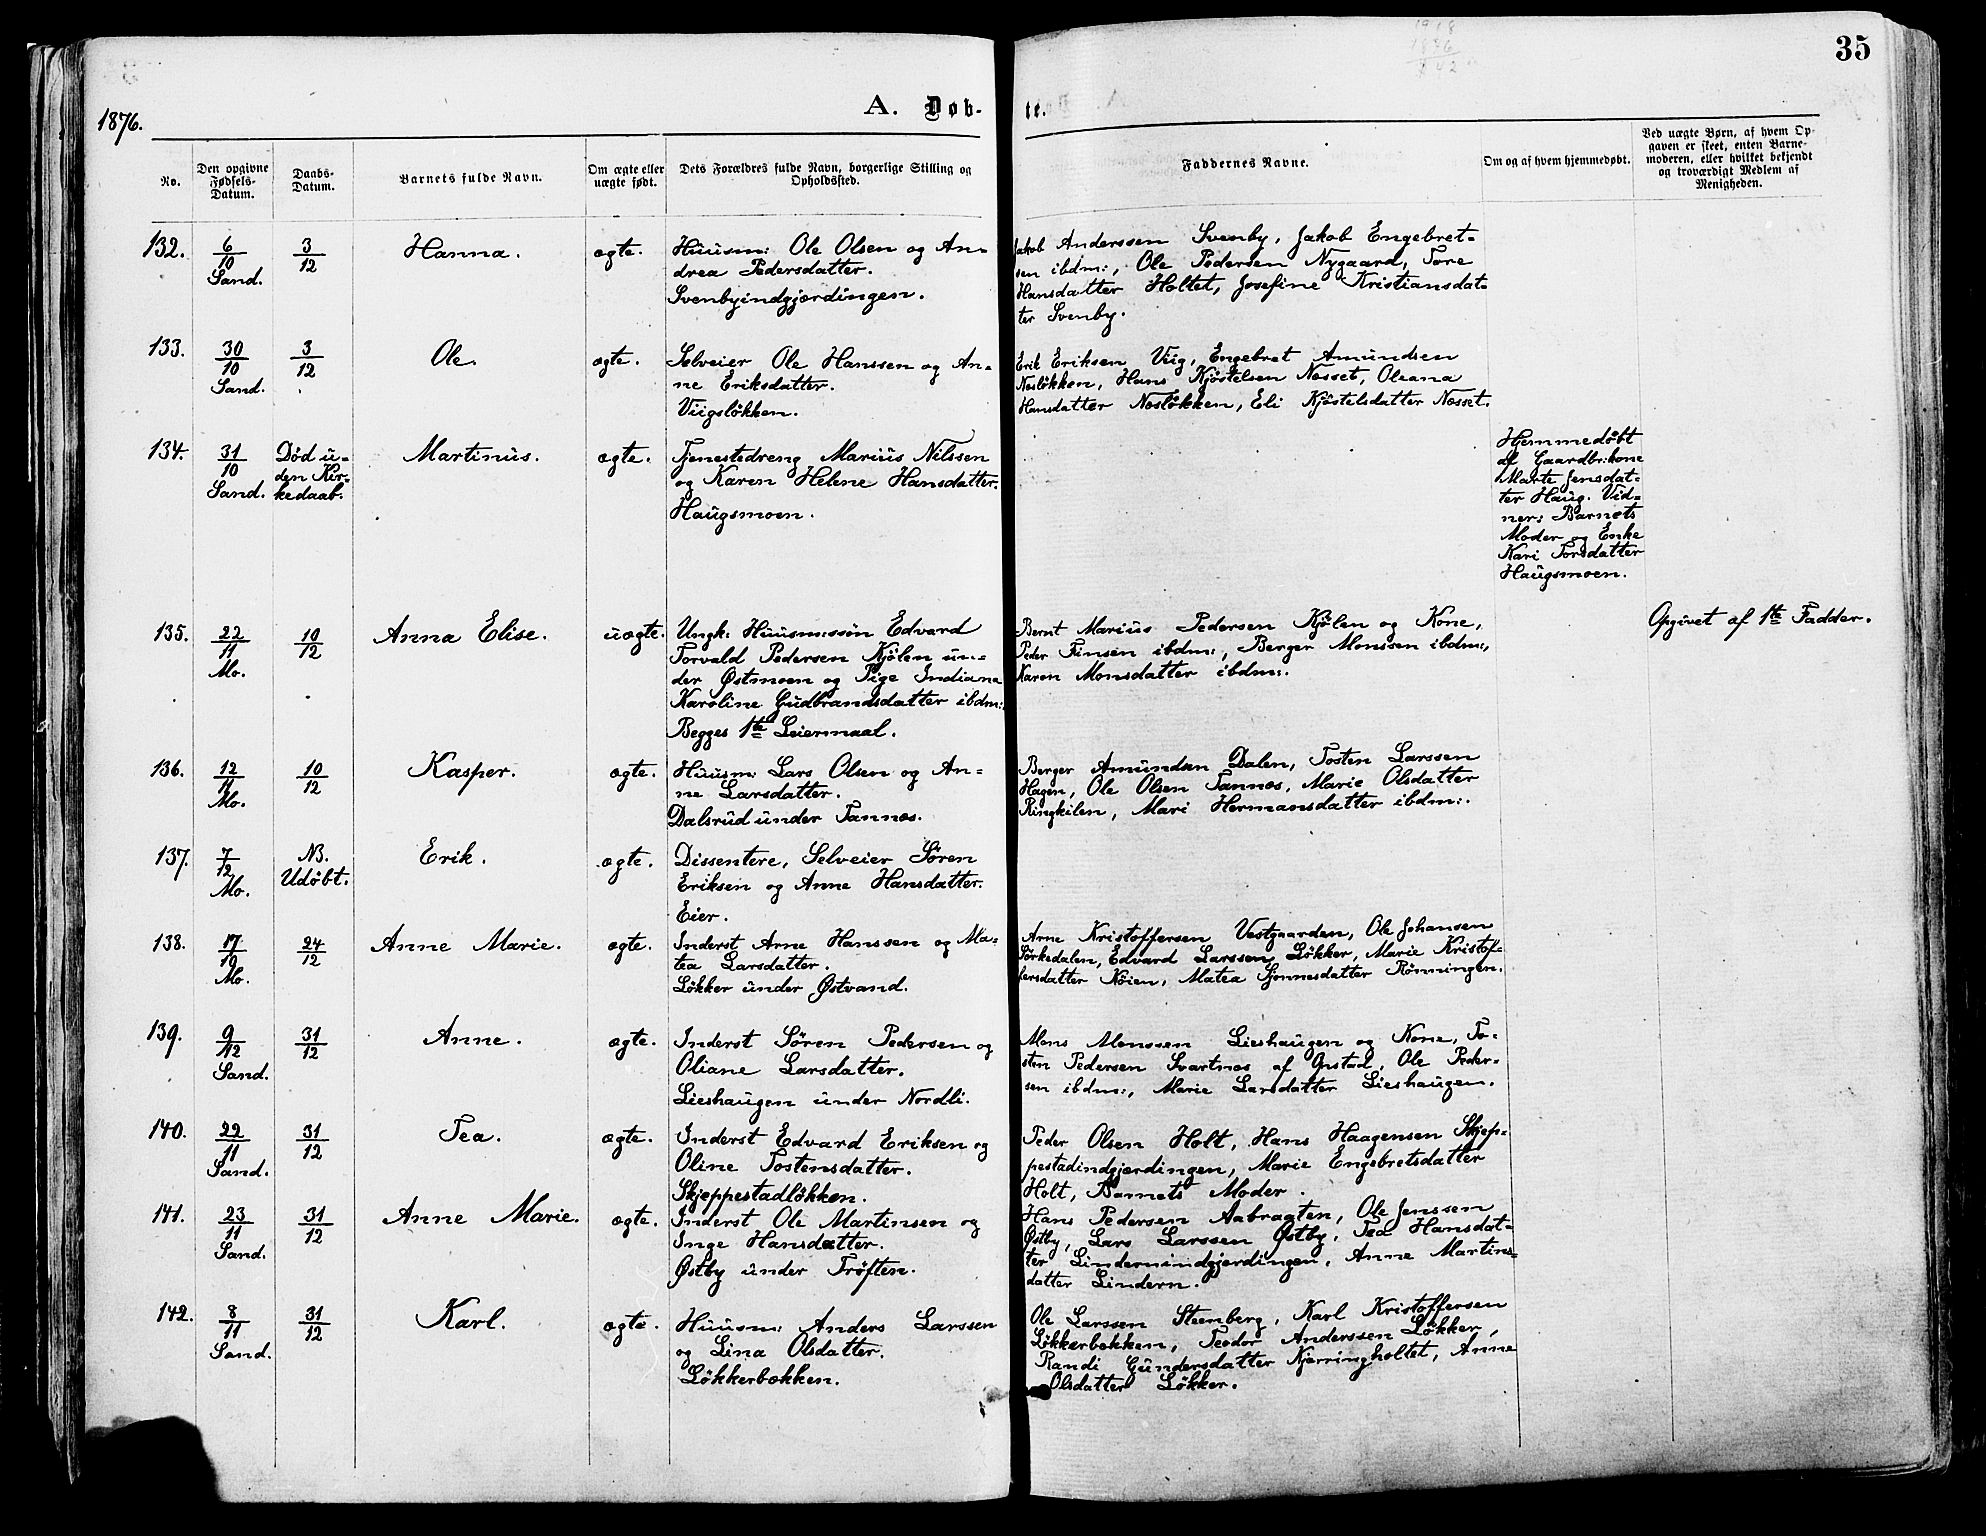 1876.
A. Døb-
te.
35
1918
1876
42
No.
Den opgivne
Fødsels-
Datum.
Daabs-
Datum.
Barnets fulde Navn.
Om ægte eller
uægte født.
Dets Forældres fulde Navn, borgerlige Stilling og
Opholdssted.
Faddernes Navne.
Om og af hvem hjemmedøbt.
Ved uægte Børn, af hvem Op-
gaven er skeet, enten Barne-
moderen, eller hvilket bekjendt
og troværdigt Medlem af
Menigheden.
132.
6/10
Sand.
3/12
Hanna.
ægte.
Huusm: Ole Olsen og An-
drea Pedersdatter.
Svenbyindgjærdingen.
Jakob Anderssen Svenby, Jakob Engebret-
sen ibdm:, Ole Pedersen Nygaard, Tore
Hansdatter Holtet, Josefine Kristiansdat-
ter Svenby.
133.
30/10
Sand.
3/12
Ole.
ægte.
Selveier Ole Hanssen og An-
ne Eriksdatter.
Viigsløkken.
Erik Eriksen Viig, Engebret Amundsen
Næsløkken, Hans Kjøstelsen Næsset, Oleana
Hansdatter Næsløkken, Eli Kjøstelsdatter Næsset.
134.
31/10
Sand.
Død u-
den Kir-
kedaab.
Martinus.
ægte.
Tjenestedreng Marius Nilssen
og Karen Helene Hansdatter.
Haugsmoen.
Hjemmedøbt
af Gaardbr:kone
Marte Jensdat-
ter Haug. Vid-
ner: Barnets
Moder og Enke
Kari Torsdatter
Haugsmoen.
135.
22/11
Mo.
10/12
Anna Elise.
uægte.
Ungk: Huusm:søn Edvard
Torvald Pedersen Kjølen un-
der Østmoen og Pige Indiana
Karoline Gudbrandsdatter ibdm:
Begges 1ste Leiermaal.
Bernt Marius Pedersen Kjølen og Kone,
Peder Finsen ibdm:, Berger Monssen ibdm:,
Karen Monsdatter ibdm:.
Opgivet af 1ste Fadder.
136.
12/11
Mo.
10/12
Kasper.
ægte.
Huusm: Lars Olsen og An-
ne Larsdatter.
Dalsrud under Tannæs.
Berger Amundsen Dalen, Tosten Larssen
Hagen, Ole Olsen Tannæs, Marie Olsdatter
Ringkilen, Mari Hermansdatter ibdm:.
137.
7/12
Mo.
NB.
Udøbt.
Erik.
ægte.
Dissentere, Selveier Søren
Eriksen og Anne Hansdatter.
Eier.
138.
17/10
Mo.
24/12
Anne Marie.
ægte.
Inderst Arne Hanssen og Ma-
tea Larsdatter.
Løkker under Østvand.
Arne Kristoffersen Vestgaarden, Ole Johansen
Sørkedalen, Edvard Larssen Løkker, Marie Kristof-
fersdatter Nøien, Matea Simensdatter Rønningen.
139.
9/12
Sand.
31/12
Anne.
ægte.
Inderst Søren Pedersen og
Oliane Larsdatter.
Lieshaugen under Nordli.
Mons Monssen Lieshaugen og Kone, To-
sten Pedersen Svartnæs af Opstad, Ole Peder-
sen ibdm:, Marie Larsdatter Lieshaugen.
140.
22/11
Sand.
31/12
Tea.
ægte.
Inderst Edvard Eriksen og
Oline Tostensdatter.
Skjeppestadløkken.
Peder Olsen Holt, Hans Haagensen Skjep-
pestadindgjærdingen, Marie Engebretsdatter
Holt, Barnets Moder.
141.
23/11
Sand.
31/12
Anne Marie.
ægte.
Inderst Ole Martinsen og
Inge Hansdatter.
Østby under Trøften.
Hans Pedersen Aabraaten, Ole Jenssen
Østby, Lars Larssen Østby, Tea Hansdat-
ter Lindernindgjærdingen, Anne Martins-
datter Lindern.
142.
8/11
Sand.
31/12
Karl.
ægte.
Huusm: Anders Larssen
og Lina Olsdatter.
Løkkerbækken.
Ole Larssen Steenberg, Karl Kristoffersen
Løkkerbækken, Teodor Anderssen Løkker,
Randi Gundersdatter Kjerringholtet, Anne
Olsdatter Løkker.